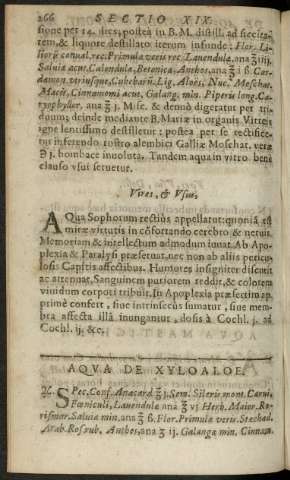 266 SECTIO XIX.
sione per 14. dies; postea in B.M. distill. ad siccita-
tem, & liquore destillato iterum infunde: Flor. Li-
liorũ conval. rec. Primulæ veris rec. Lavendulæ, ana ℥ iiij.
Salviæ acut. Calendulæ, Betonicæ, Anthos, ana ℥ i ß. Car-
damom. utriusque, Cubebarũ, Lig. Aloës, Nuc. Moschat.
Macis, Cinnamomi acut. Galang. min. Piperis long. Ca-
ryophyllor. ana ℥ j. Misc. & denuò digeratur per tri-
duum; deinde mediante B. Mariæ in organis Vitreis
igne lentissimo destilletur: postea per se rectifice-
tur inferendo rostro alembici Galliæ Moschat. veræ
℈ j. bombace involuta. Tandem aqua in vitro benè
clauso usui servetur.
Vires, & Usus.
AQua Sophorum rectius appellatur: quoniã est
miræ virtutis in cõfortando cerebro & nervis.
Memoriam & intellectum admodum iuvat. Ab Apo-
plexia & Paralysi præservat, nec non ab aliis pericu-
losis Capitis affectibus. Humores insigniter discutit
ac attenuat, Sanguinem puriorem reddit, & colorem
vividum corpori tribuit. In Apoplexia præsertim ap-
primè confert, sive intrinsecus sumatur, sive mem-
bra affecta illâ inunganiur, dosis à Cochl. j. ad
Cochl. ij, &c.
AQVA DE XYLOALOE.
℞. SPec. Conf. Anacard. ℥ j. Sem. Sileris mont. Carvi,
Fœniculi, Lavendulæ ana ℥ vj Herb. Maior. Ro-
rismar. Salviæ min. ana ℥ ß. Flor. Primulæ veris, Stœchad.
Arab. Ros rub. Anthos, ana ℥ ij. Galangæ min. Cinnam.